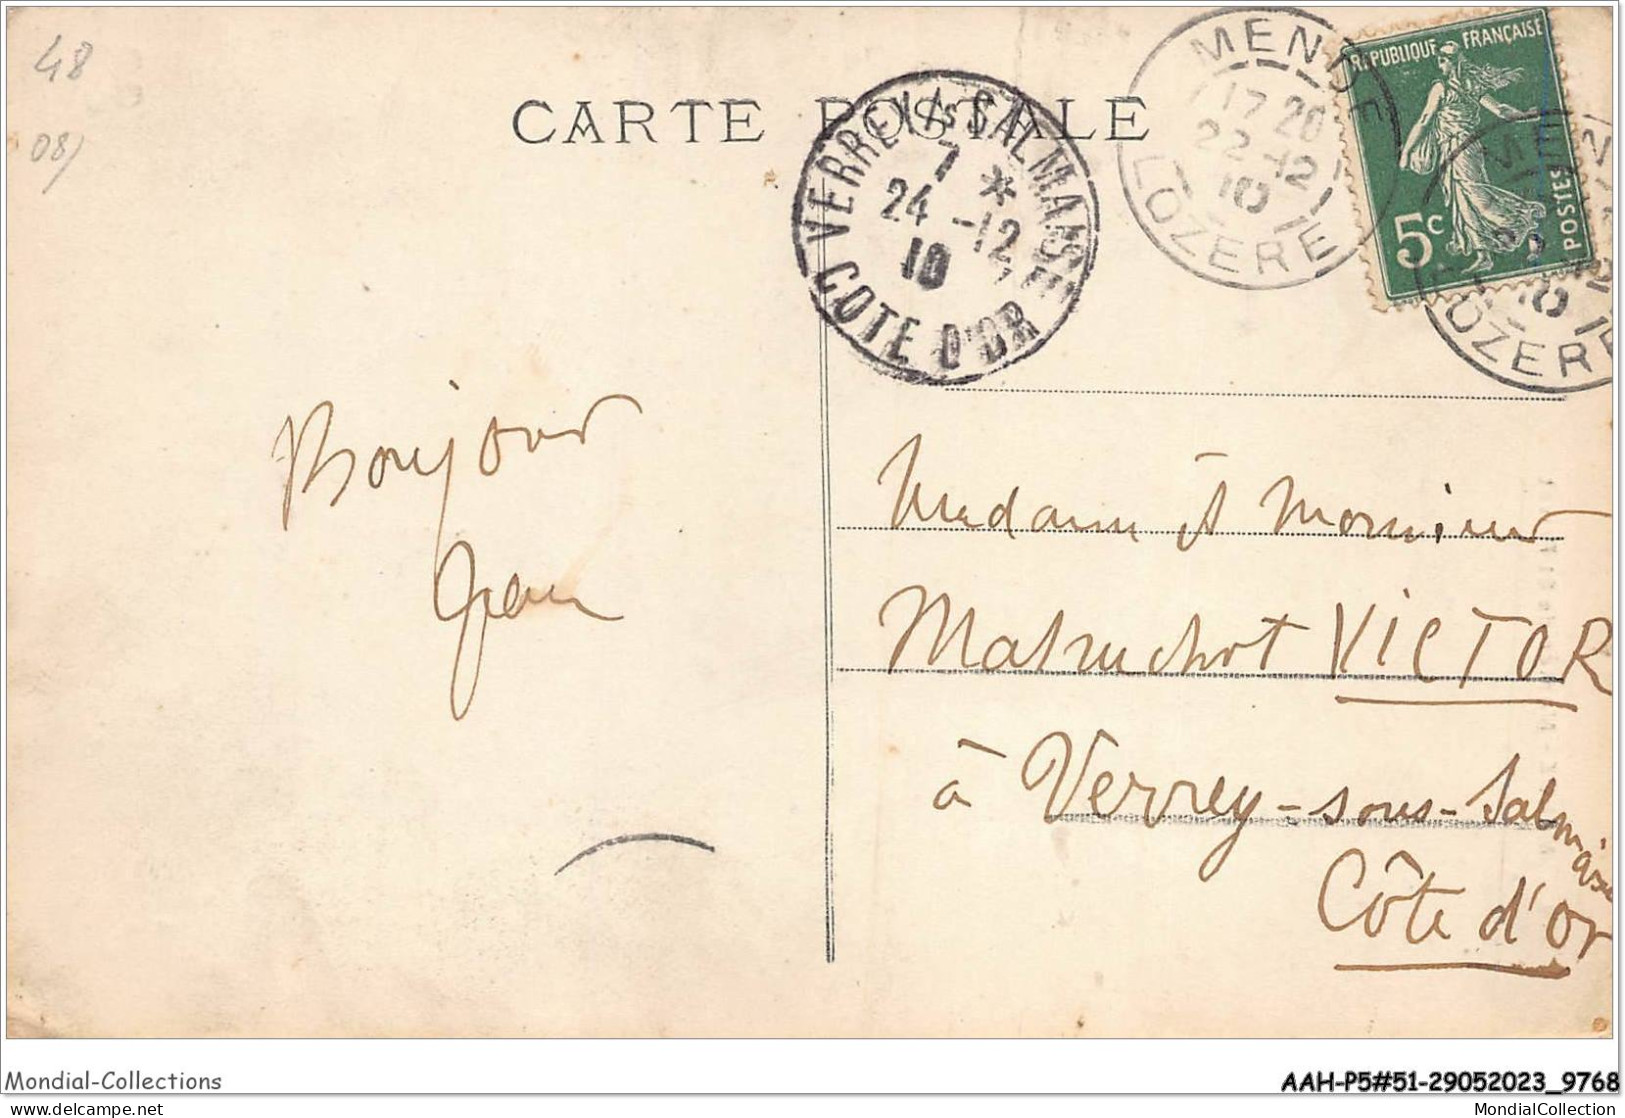 48
08)
CARTE POSTALE
VERREY-Ss-SALMAISE
7 *
24 -12
10
COTE D'OR
MENDE
17 20
22-12
10
LOZERE
REPUBLIQUE FRANÇAISE
5c
POSTES
MEN
10
LOZERE
Bonjour
Jean
Madame et Monsieur
Matruchot VICTOR
à Verrey-sous-Salmaise
Côte d'or
Mondial-Collections
AAH-P5#51-29052023_9768
www.delcampe.net
MondialCollection